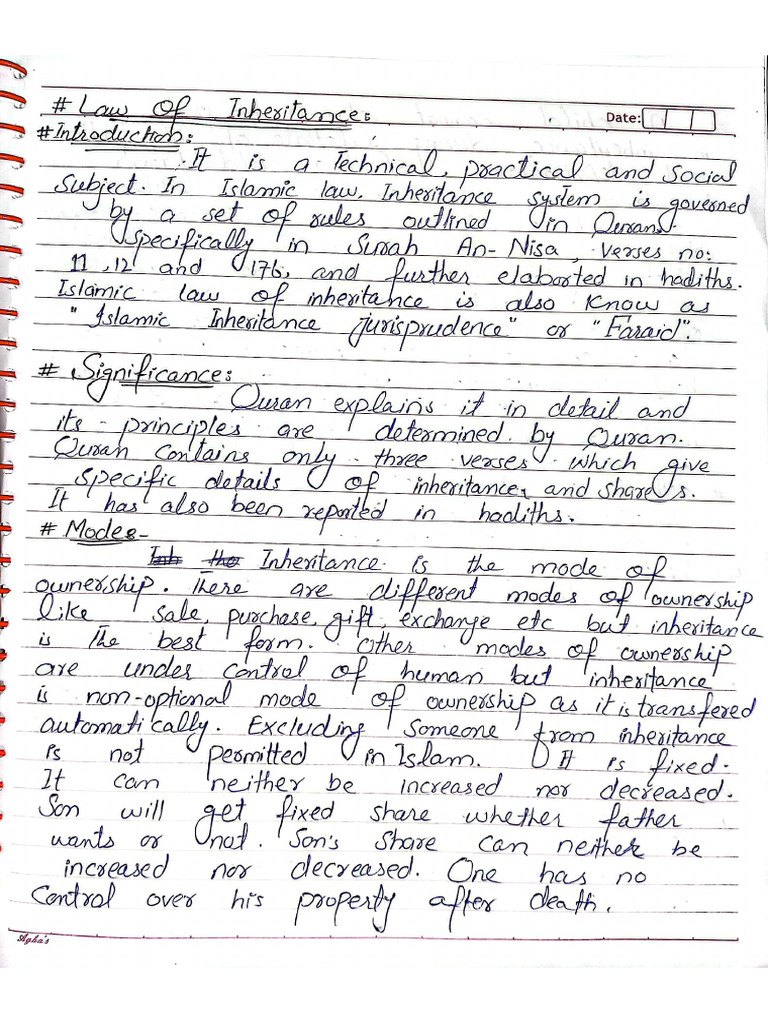 # Law of Inheritance:
Date:
# Introduction:
It is a Technical, practical and social
subject. In Islamic law, Inheritance system is governed
by a set of rules outlined in Quran.
Specifically in Surah An-Nisa, verses no:
11, 12 and 176, and further elaborted in hadiths.
Islamic law of inheritance is also know as
"Islamic Inheritance jurisprudence" or "Faraid".
# Significance:
Quran explains it in detail and
its principles are determined by Quran.
Quran contains only three verses which give
specific details of inheritance, and shares.
It has also been reported in hadiths.
# Mode:-
Inheritance is the mode of
ownership. There are different modes of ownership
like sale, purchase, gift, exchange etc but inheritance
is the best form. Other modes of ownership
are under control of human but inheritance
is non-optional mode of ownership as it is transfered
automatically. Excluding someone from inheritance
is not permitted in Islam. It is fixed.
It can neither be increased nor decreased.
Son will get fixed share whether father
wants or not. Son's share can neither be
increased nor decreased. One has no
control over his property after death.
Agha's